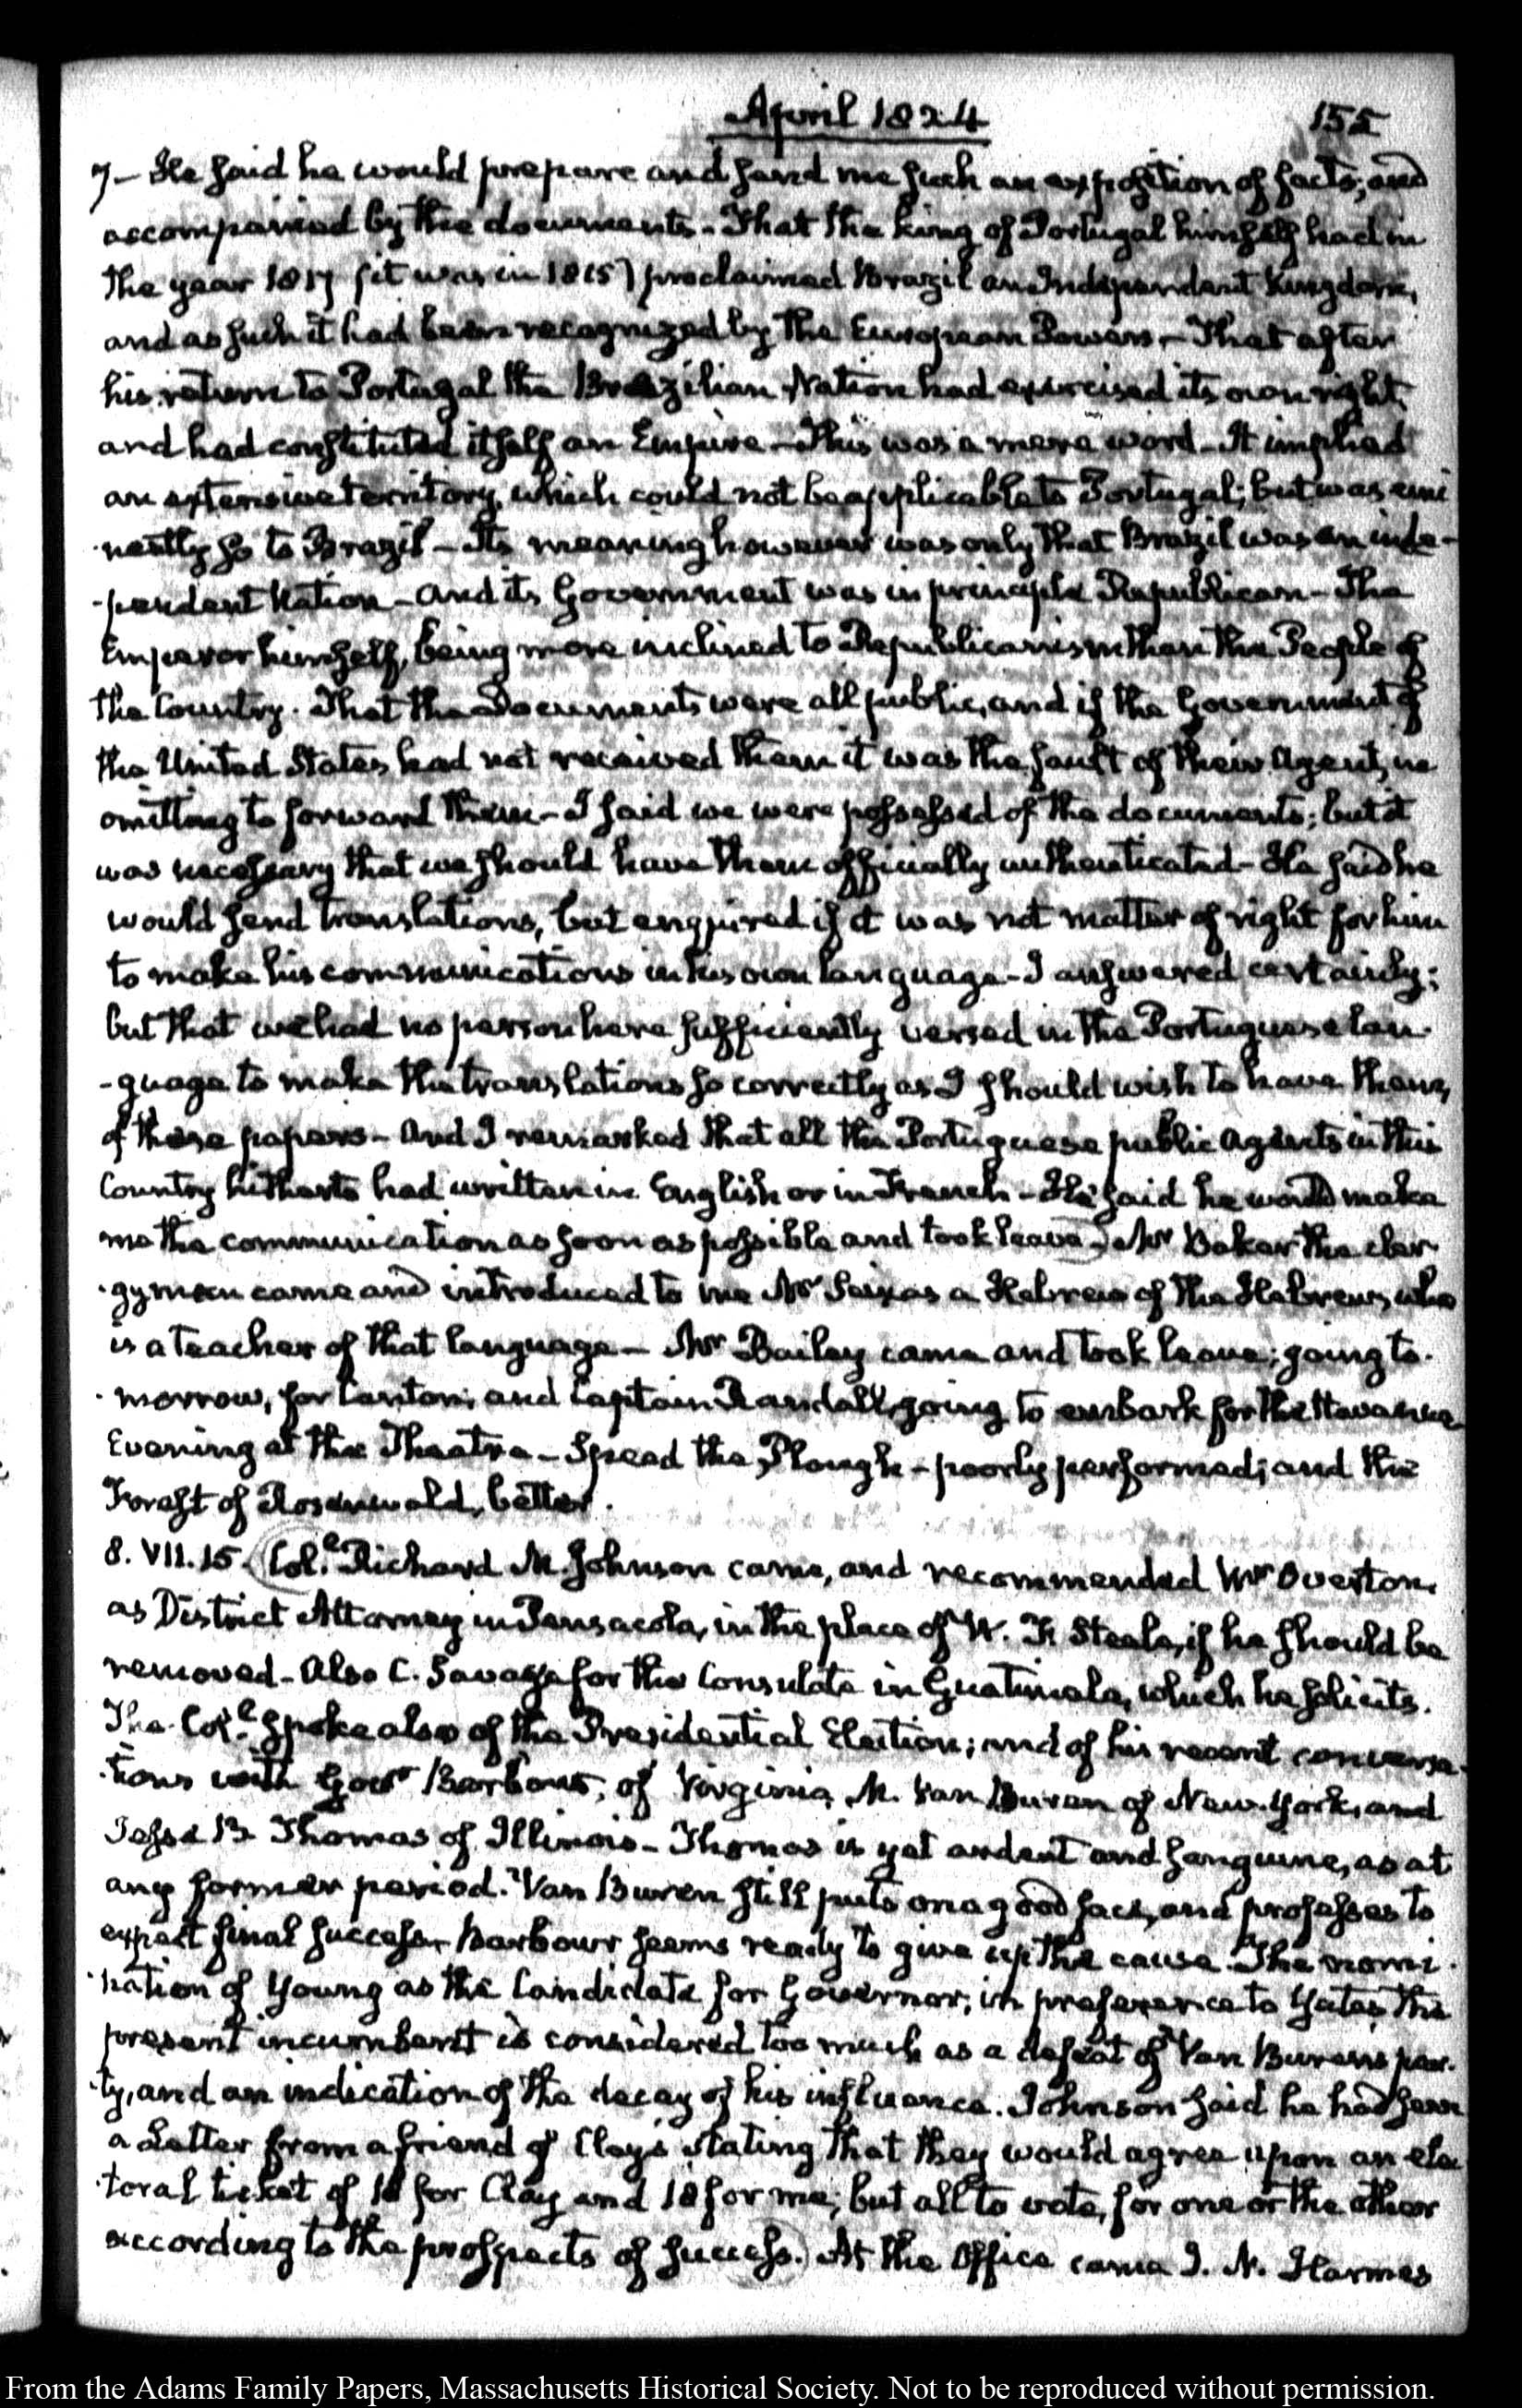 April 1824
155
7 — He said he would prepare and send me such an exposition of facts; and
accompanied by the documents. That the king of Portugal himself had in
the year 1817 (it was in 1815) proclaimed Brazil an Independent Kingdom,
and as such it had been recognized by the European Powers — That after
his return to Portugal the Brazilian Nation had exercised its own right
and had constituted itself an Empire — This was a mere word — It implied
an extensive territory, which could not be applicable to Portugal; but was emi
-nently so to Brazil — Its meaning however was only that Brazil was an inde-
-pendent Nation — And its Government was in principle Republican — The
Emperor himself, being more inclined to Republicanism than the People of
the Country. That the Documents were all public, and if the Government of
the United States had not received them it was the fault of their Agent, in
omitting to forward them — I said we were possessed of the documents; but it
was necessary that we should have them officially authenticated — He said he
would send translations, but enquired if it was not matter of right for him
to make his communications in his own language — I answered certainly;
but that we had no person here sufficiently versed in the Portuguese lan
-guage to make the translations so correctly as I should wish to have them,
of these papers — And I remarked that all the Portuguese public Agents in this
Country hitherto had written in English or in French — He said he would make
me the communication as soon as possible and took leave. Mr Baker the cler
-gyman came and introduced to me Mr Seixas a Hebrew of the Hebrews, who
is a teacher of that language — Mr Bailey came and took leave; going to-
-morrow, for Canton; and Captain Randall, going to embark for the Havanna
Evening at the Theatre — Speed the Plough — poorly performed; and the
Forest of Rosenwald, better.
8. VII.15. Col.e Richard M. Johnson came, and recommended Mr Overton
as District Attorney in Pensacola, in the place of W. F. Steele, if he should be
removed — Also C. Savage for the Consulate in Guatimala, which he solicits.
The Col.e spoke also of the Presidential Election; and of his recent conversa-
-tions with Govr Barbour, of Virginia, M. Van Buren of New-York, and
Jesse B. Thomas of Illinois — Thomas is yet ardent and sanguine, as at
any former period. Van Buren still puts on a good face, and professes to
expect final success — Barbour seems ready to give up the cause. The nomi-
-nation of Young as the Candidate for Governor, in preference to Yates, the
present incumbent is considered too much as a defeat of Van Buren's par-
-ty, and an indication of the decay of his influence. Johnson said he had seen
a Letter from a friend of Clay's stating that they would agree upon an elec
-toral ticket of 18 for Clay and 18 for me; but all to vote, for one or the other
according to the prospects of success. At the Office came J. N. Harmes
From the Adams Family Papers, Massachusetts Historical Society. Not to be reproduced without permission.